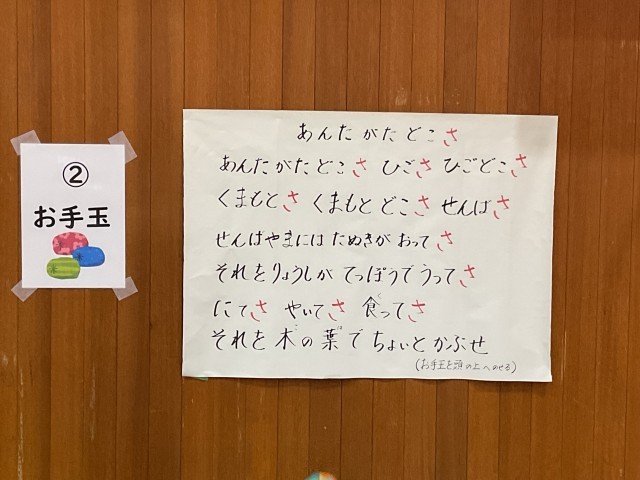 ②
お手玉
あんたがたどこさ
あんたがたどこさ ひごさ ひごどこさ
くまもとさ くまもとどこさ せんばさ
せんばやまには たぬきが おってさ
それをりょうしが てっぽうでうってさ
にてさ やいてさ 食ってさ
それを木の葉でちょいとかぶせ
(お手玉を頭の上へのせる)